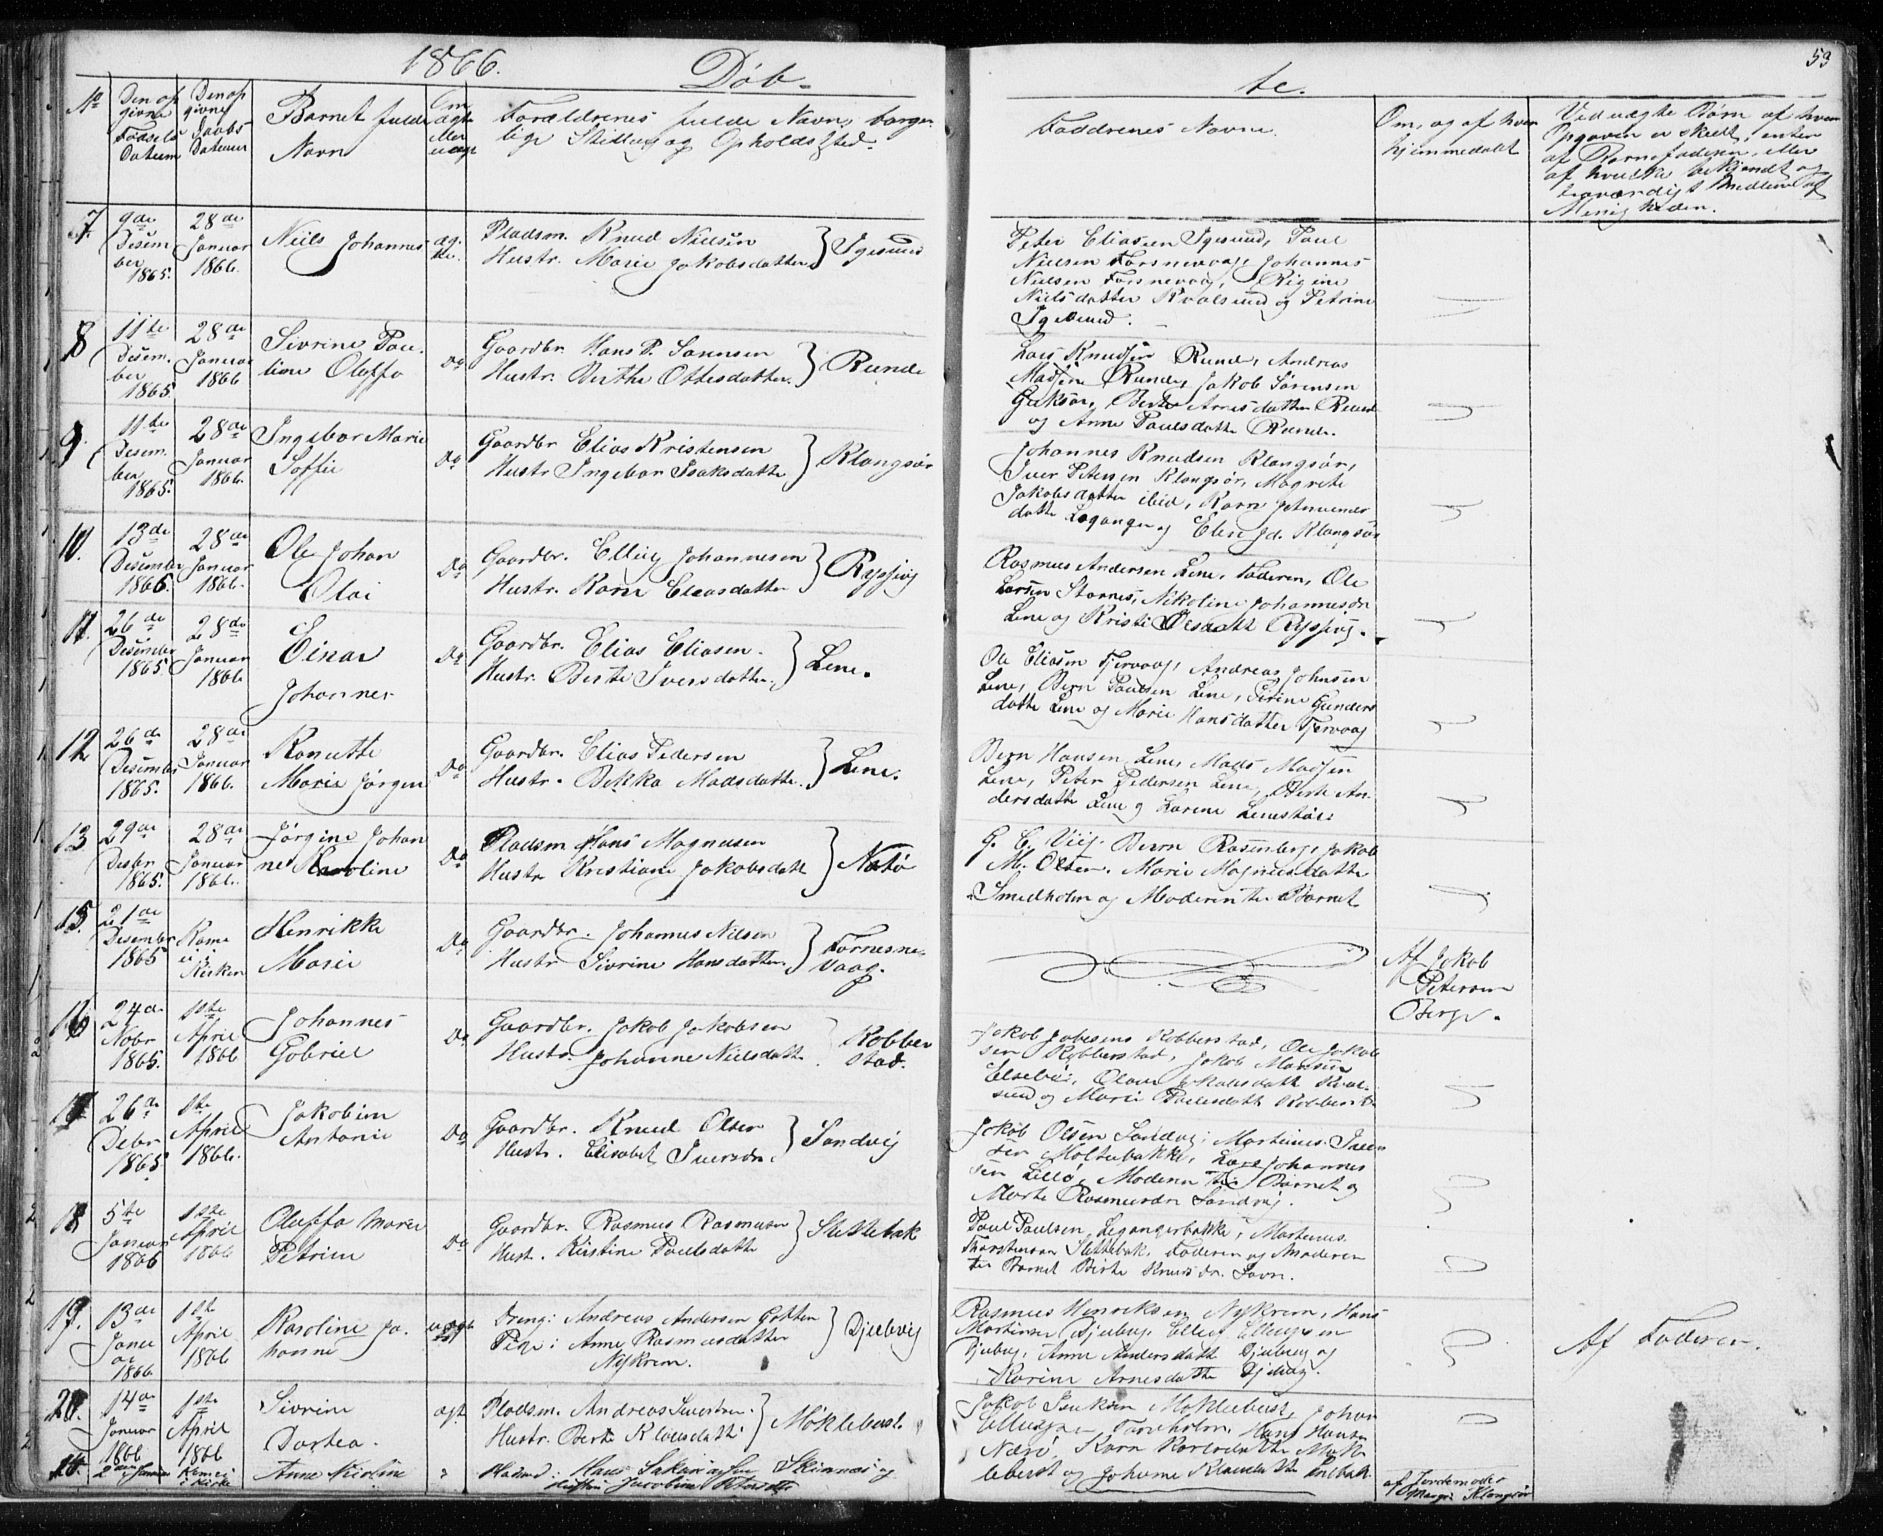 1866.
Døb-
te.
53
No
Den op
givne
Fødsels
Datum
Den op
givne
Daabs
Datum
Barnets fulde
Navn
Om
ægte
eller
uægte
Forældrenes fulde Navn, borger-
lige Stilling og Opholdssted.
Faddrenes Navne.
Om, og af hvem
hjemmedøbt
Ved uægte Børn af hvem
Opgaven er skeet, enten
af Barnefaderen, eller
af hvilke bekjendt og
troværdigt Medlem af
Menigheden.
7
9de
Desem
ber
1865.
28de
Januar
1866.
Niels Johannes
æg-
te.
Pladsm. Knud Nielsen
Hustr. Marie Jakobsdatter
Igesund
Peter Eliassen Igesund, Paul
Nielsen Forsnevaag, Johannes
Nielsen Forsnevaag, Rigine
Nielsdatter Kvalsund og Petrine
Igesund.
8
11te
Desem-
ber
1865.
28de
Januar
1866
Sivrine Pau-
line Oluffa
Do
Gaardbr. Hans P. Sørensen
Hustr. Berthe Ottesdatter.
Runde
Lars Knudsen Runde, Andreas
Madsen Runde, Jakob Sørensen
Berte Arnesdatter Runde
og Anne Paulsdatter Runde.
9.
11te
Desem-
ber
1865.
28de
Januar
1866.
Ingebor Marie
Soffie
Do
Gaardbr Elias Kristensen
Hustr Ingebor Isaksdatter
Klongsør
Johannes Knudsen Klongsør,
Iver Petersen Klongsør, Magrete
Jakobsdatter ibid, Karn
datter Leganger og Elen Jd. Klongsør
10.
13de
Desember
1865.
28de
Januar
1866.
Ole Johan
Olai
Do
Gaardbr. Elling Johannesen
Hustr. Karn Eliasdatter
Ryssivig
Rasmus Andersen Lene, Faderen, Ole
Larsen Størnes, Nikoline Johannesdr
Lene og Kristi Olsdatter Ryssivig.
11.
26de
Desember
1865
28de
Januar
1866
Einar
Johannes
Do
Gaardbr. Elias Eliasen.
Hustr. Berte Iversdatter.
Lene.
Ole Eliasen Tjervaag, Andreas Johnsen
Lene, Bern Paulsen Lene, Serine Gunders
datter Lene og Marie Hansdatter Tjervaag
12
26de
Desember
1865.
28de
Januar
1866.
Ranutte
Marie Jørgen
Do
Gaardbr. Elias Pedersen
Hustr. Bekka Madsdatter.
Lene.
Bern Hansen Lene, Mads Madsen
Lene, Peter Pedersen Lene, Berte An-
dersdatter Lene og Karine Lenestøl
13
29de
Desbr
1865.
28de
Januar
1866.
Jørgine Johan
ne Karoline
Do
Pladsm Hans Magnusen
Hustr Kristiane Jakobsdatt
Natø
G. E. Viig. Bern Rosenberg, Jakob
M. Olsen, Marie Magnusdatter
Smedholm og Moderen til Barnet
15.
21de
Desember
1865
Kome
ei i
Kirken
Henrikke
Marie
Do
Gaardbr. Johannes Nilsen
Hustr Sivrine Hansdatter.
Fornesne-
vaag.
Af Jakob
Petersen
Berge.
16
24de
Nobr
1865.
1ste
April
1866
Johannes
Gabriel
Do
Gaardbr. Jakob Jakobsen
Hustr. Johanne Nielsdatt
Robber
stad.
Jakob Jakobsens Robberstad, Ole Jakob
sen Robberstad, Jakob Monsen
Elsebø, Olave Jakobsdatt Kval-
sund og Marie Paulsdatt Robberst.
17
26de
Debr
1865.
1ste
April
1866.
Jakobine
Antonie
Do
Gaardbr. Knud Olsen
Hustr. Elisabet Iversdr.
Sandvig
Jakob Olsen Sandvig, Martinus Iver
sen Moltubakke, Lars Johannes
sen Lillø, Moderen til Barnet og
Marte Rasmusdr Sandvig.
18
5te
Januar
1866
1ste
April
1866
Oluffa Marie
Petrine
Do
Gaardbr. Rasmus Rasmusen
Hust. Kirstine Paulsdatter
Slettebak
Paul Paulsen Legangerbakke, Martinus
Thorstensen Slettebak, Faderen og Moderen
til Barnet Birte Knuds dr. Savn.
19.
13de
Janu
ar
1866
1ste
April
1866
Karoline Jo-
hanne
uægte
Dreng: Andreas Andersen Gotten
Pige: Anne Rasmusdatter
Nykrem.
Djubvig
Rasmus Henriksen Nykrem, Hans
Martinsen Djubvig, Elling Ellingsen
Djubvig, Anne Andersdatt Djubvig og
Karine Arnesdatter Djubvig.
Af Faderen.
20.
14de
Januar
1866
1ste
April
1866
Sivrine
Dortea.
ægt.
Pladsm. Andreas Sivertsen.
Hustr. Berte Klausdatt.
Møklebust.
Jakob Møklebust, Johan
Ellingsen Hans Hansen
Nærø, Karn Karlsdatter Møk-
lebust og Johanne Klausdatter
14.
2den Januar
Kom ei
i Kirke
Anne Nicoline
Husmd: Hans Skinnes og
Hustru Jacobine Petersdtr
af Jordemoder
Klongsør